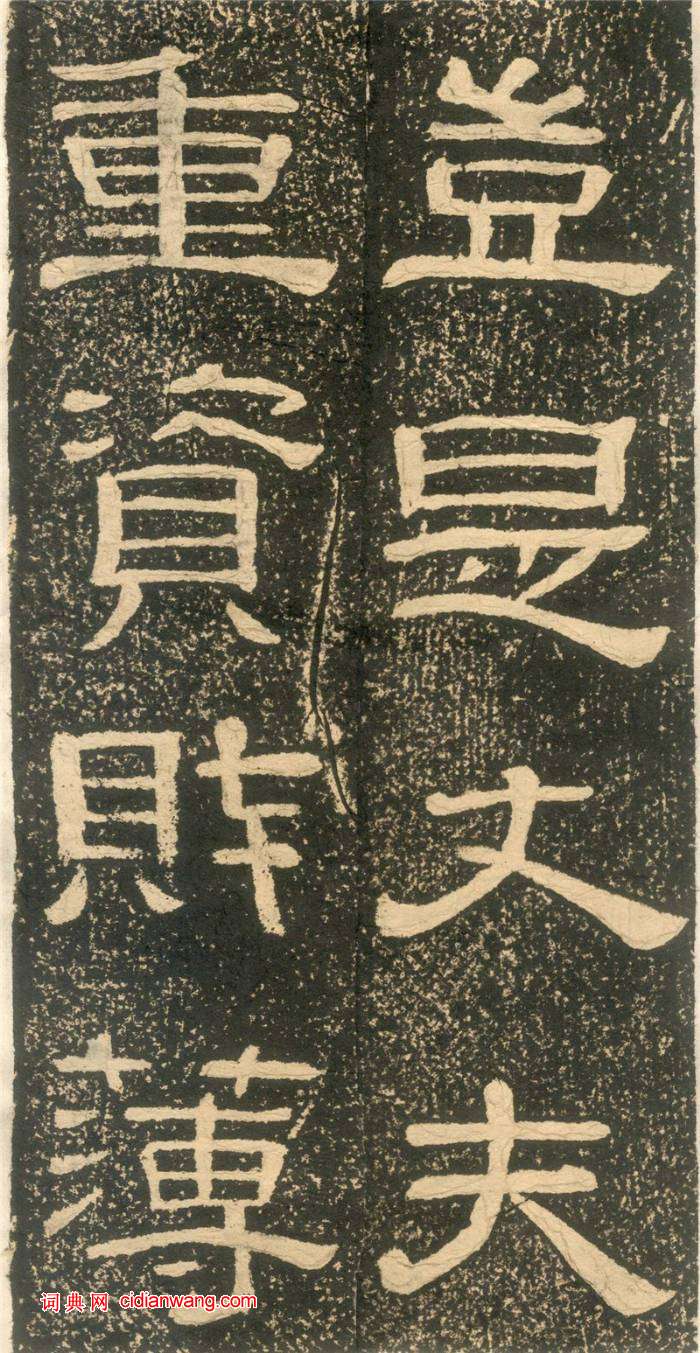 豈是丈夫
重資財薄
词典网 cidianwang.com